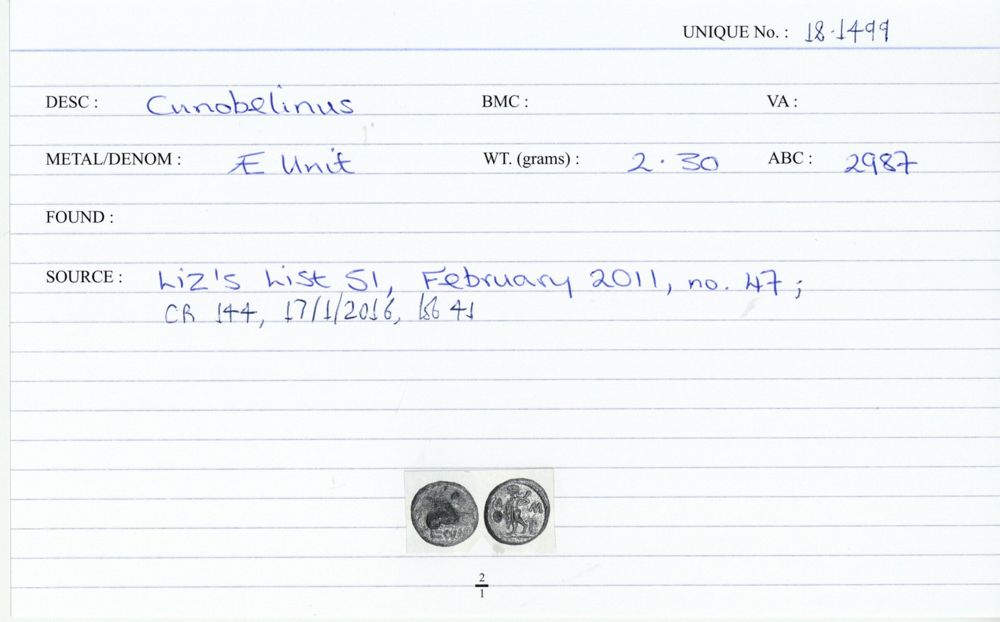 UNIQUE No. : 18.1499
DESC : Cunobelinus BMC : VA :
METAL/DENOM : Æ Unit WT. (grams) : 2.30 ABC : 2987
FOUND :
SOURCE : Liz's List 51, February 2011, no. 47;
CR 144, 17/1/2016, 41
2
1